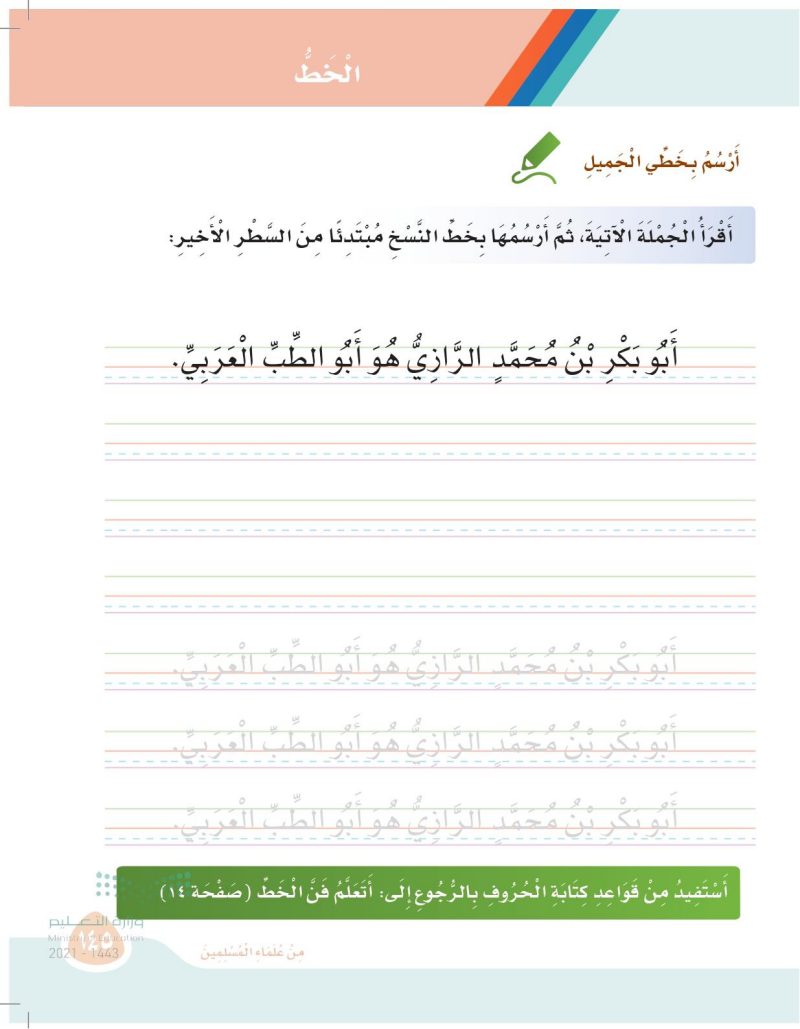 الْخَطُّ
أَرْسُمُ بِخَطِّي الْجَمِيلِ
أَقْرَأُ الْجُمْلَةَ الْآتِيَةَ، ثُمَّ أَرْسُمُهَا بِخَطِّ النَّسْخِ مُبْتَدِئًا مِنَ السَّطْرِ الْأَخِيرِ:
أَبُو بَكْرِ بْنُ مُحَمَّدٍ الرَّازِيُّ هُوَ أَبُو الطِّبِّ الْعَرَبِيِّ.
أَبُو بَكْرِ بْنُ مُحَمَّدٍ الرَّازِيُّ هُوَ أَبُو الطِّبِّ الْعَرَبِيِّ.
أَبُو بَكْرِ بْنُ مُحَمَّدٍ الرَّازِيُّ هُوَ أَبُو الطِّبِّ الْعَرَبِيِّ.
أَبُو بَكْرِ بْنُ مُحَمَّدٍ الرَّازِيُّ هُوَ أَبُو الطِّبِّ الْعَرَبِيِّ.
أَسْتَفِيدُ مِنْ قَوَاعِدِ كِتَابَةِ الْحُرُوفِ بِالرُّجُوعِ إِلَى: أَتَعَلَّمُ فَنَّ الْخَطِّ (صَفْحَة ١٤)
وزارة التعليم
Ministry of Education
2021 - 1443
١٤٥
مِنْ عُلَمَاءِ الْمُسْلِمِينَ